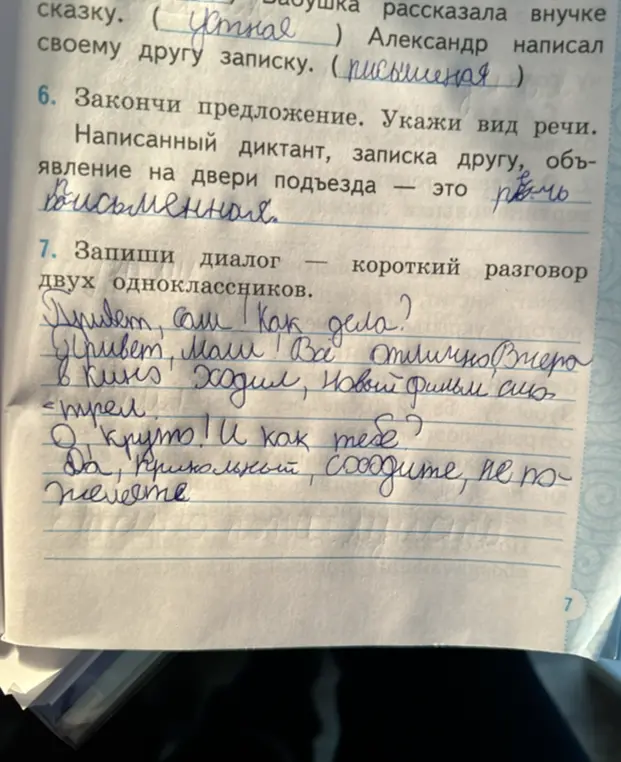 Бабушка рассказала внучке
сказку. (устная) Александр написал
своему другу записку. (письменая)
6. Закончи предложение. Укажи вид речи.
Написанный диктант, записка другу, объ-
явление на двери подъезда — это речь
письменная.
7. Запиши диалог — короткий разговор
двух одноклассников.
Привет, сам! Как дела?
Привет, Маш! Всё отлично, Вчера
в кино ходил, новый фильм смо-
трел.
О, круто! И как тебе?
Да, прикольный, сходите, не по-
жалеете
7